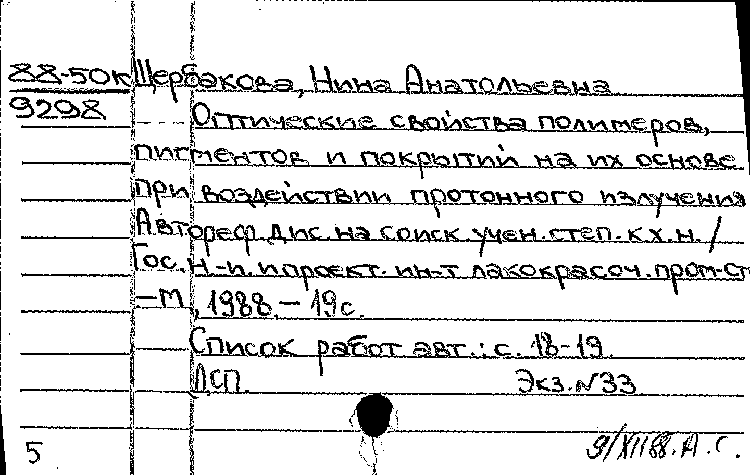 88-50к Щербакова, Нина Анатольевна
9298
Оптические свойства полимеров,
пигментов и покрытий на их основе
при воздействии протонного излучения
Автореф. дис. на соиск. учен. степ. к.х.н. /
Гос. н.-и. и проект. ин-т лакокрасоч. пром-ст
–М., 1988. – 19 с.
Список работ авт.: с. 18-19.
ДСП. Экз. №33
5 9/XII 88. А. С.